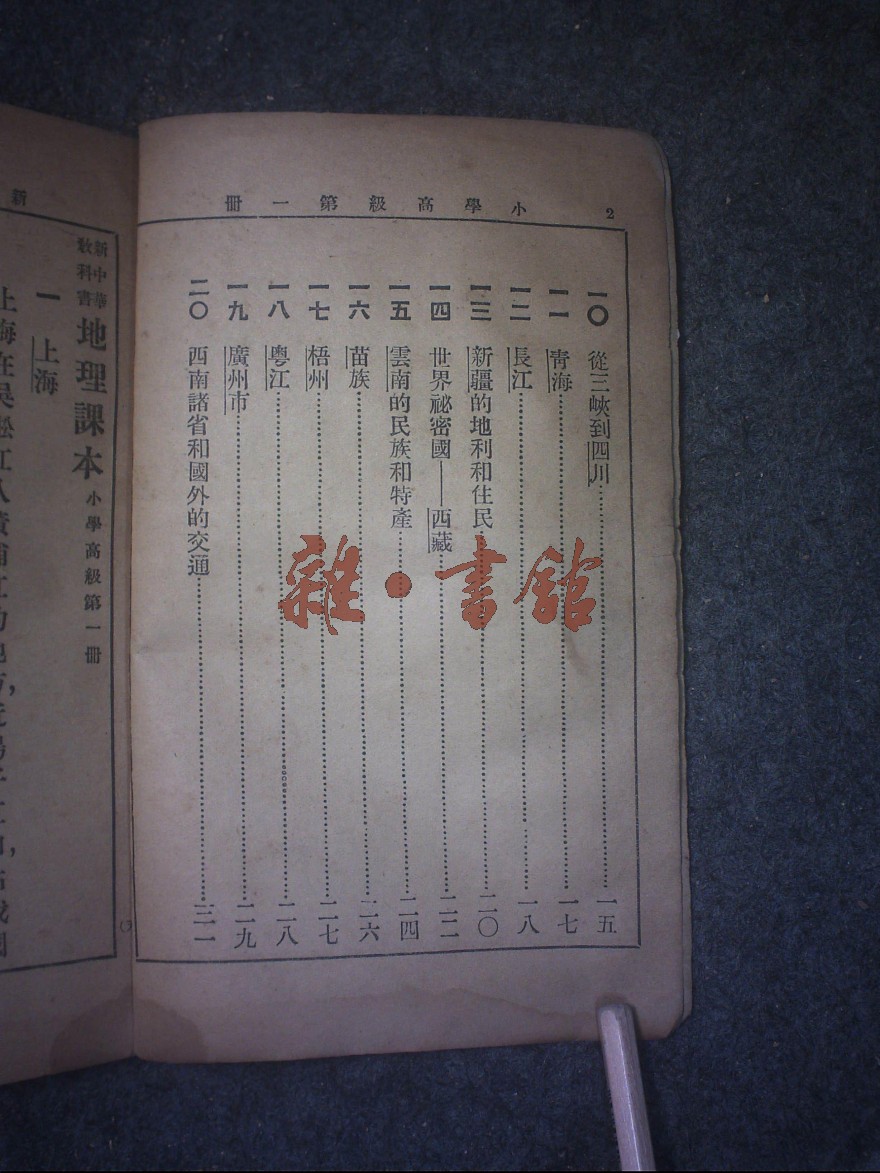 2 小學高級第一冊
一〇 從三峽到四川 一五
一一 靑海 一七
一二 長江 一八
一三 新疆的地利和住民 二〇
一四 世界祕密國——西藏 二二
一五 雲南的民族和特產 二四
一六 苗族 二六
一七 梧州 二七
一八 粵江 二八
一九 廣州市 二九
二〇 西南諸省和國外的交通 三一
雜·書館
新
新中華
敎科書
地理課本 小學高級第一冊
一 上海